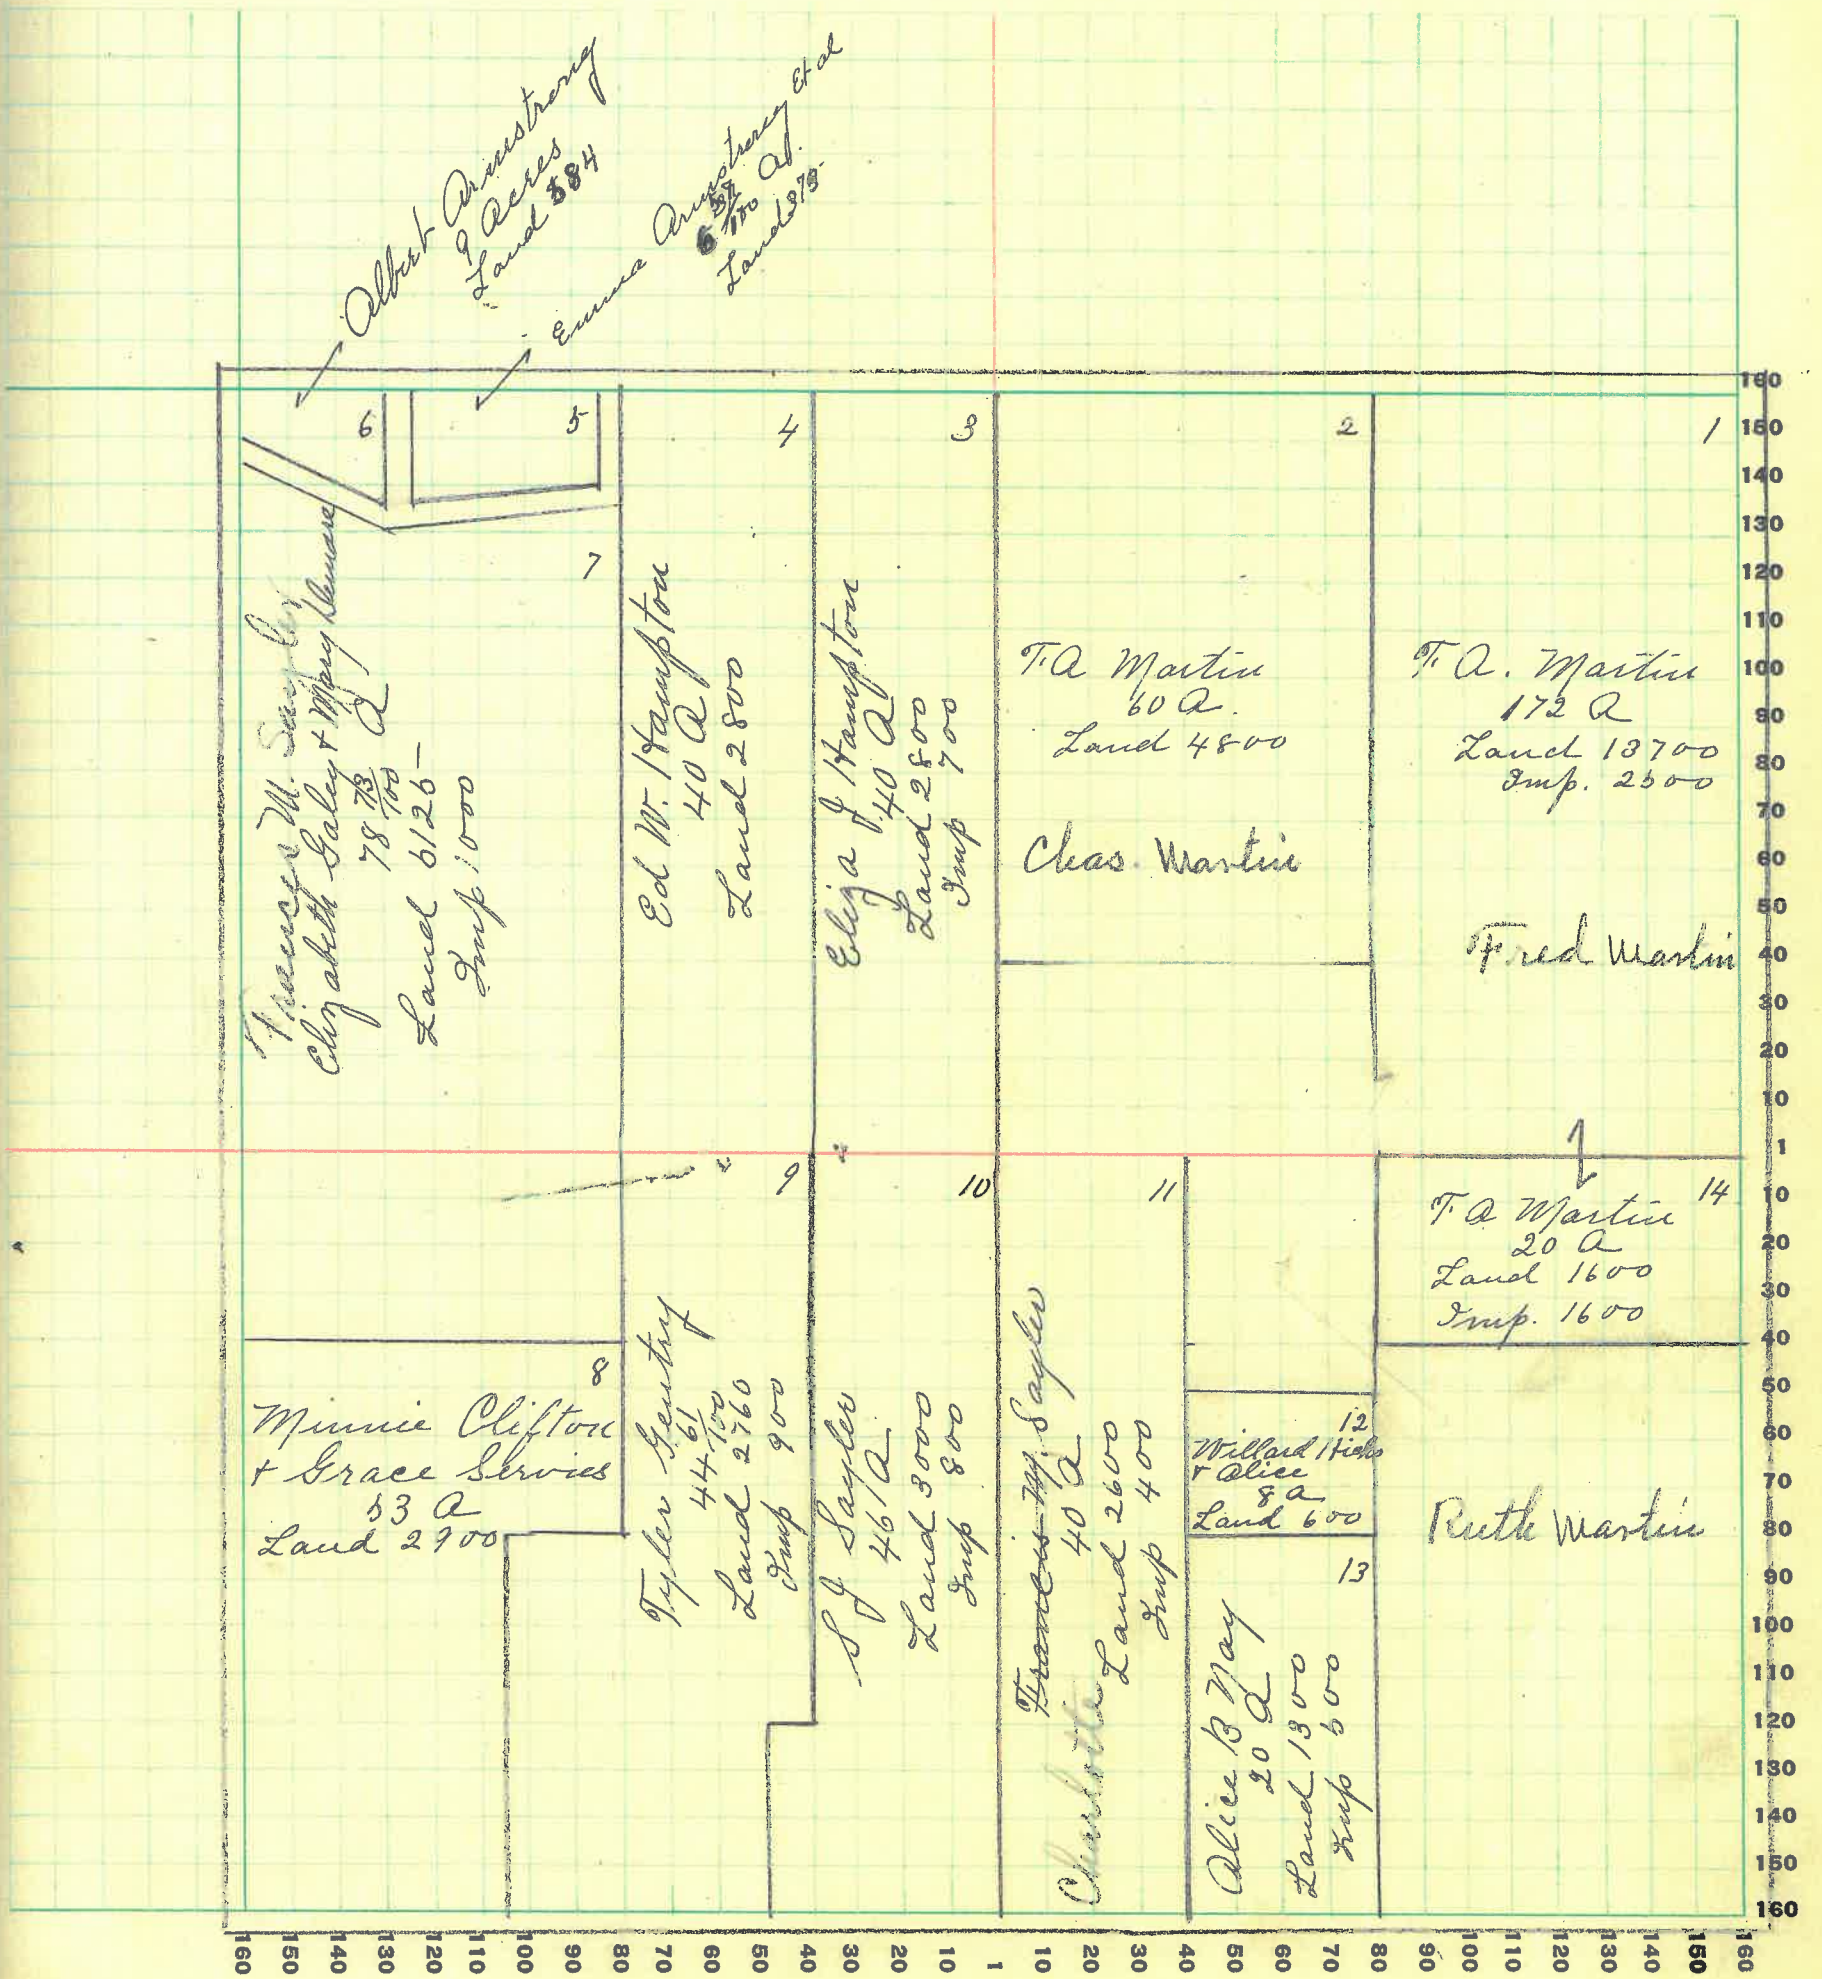 Albert Armstrong
9 Acres
Land 584
Emma Armstrong Et al
A.
Land 375
6
5
4
3
2
1
7
Frances M. Sayler
Elizabeth Galey + Mary Demaree
78 73/100 A
Land 6125
Imp 1000
Ed W. Hampton
40 A
Land 2800
Eliza J Hampton
40 A
Land 2800
Imp 700
T. A Martin
60 A.
Land 4800
Chas. Martin
T. A. Martin
172 A
Land 13700
Imp. 2500
Fred Martin
8
Minnie Clifton
+ Grace Servies
53 A
Land 2900
9
Tyler Gentry
44 61/100
Land 2760
Imp 900
10
S J Sayler
46 1 A
Land 3000
Imp 800
11
Francis M. Sayler
Charlotte
40 A
Land 2600
Imp 400
12
Willard Hicks
+ Alice
8 A
Land 600
13
Alice B Nay
20 A
Land 1300
Imp 500
14
T. A Martin
20 A
Land 1600
Imp. 1600
Ruth Martin
160
150
140
130
120
110
100
90
80
70
60
50
40
30
20
10
1
10
20
30
40
50
60
70
80
90
100
110
120
130
140
150
160
160 150 140 130 120 110 100 90 80 70 60 50 40 30 20 10 1 10 20 30 40 50 60 70 80 90 100 110 120 130 140 150 160